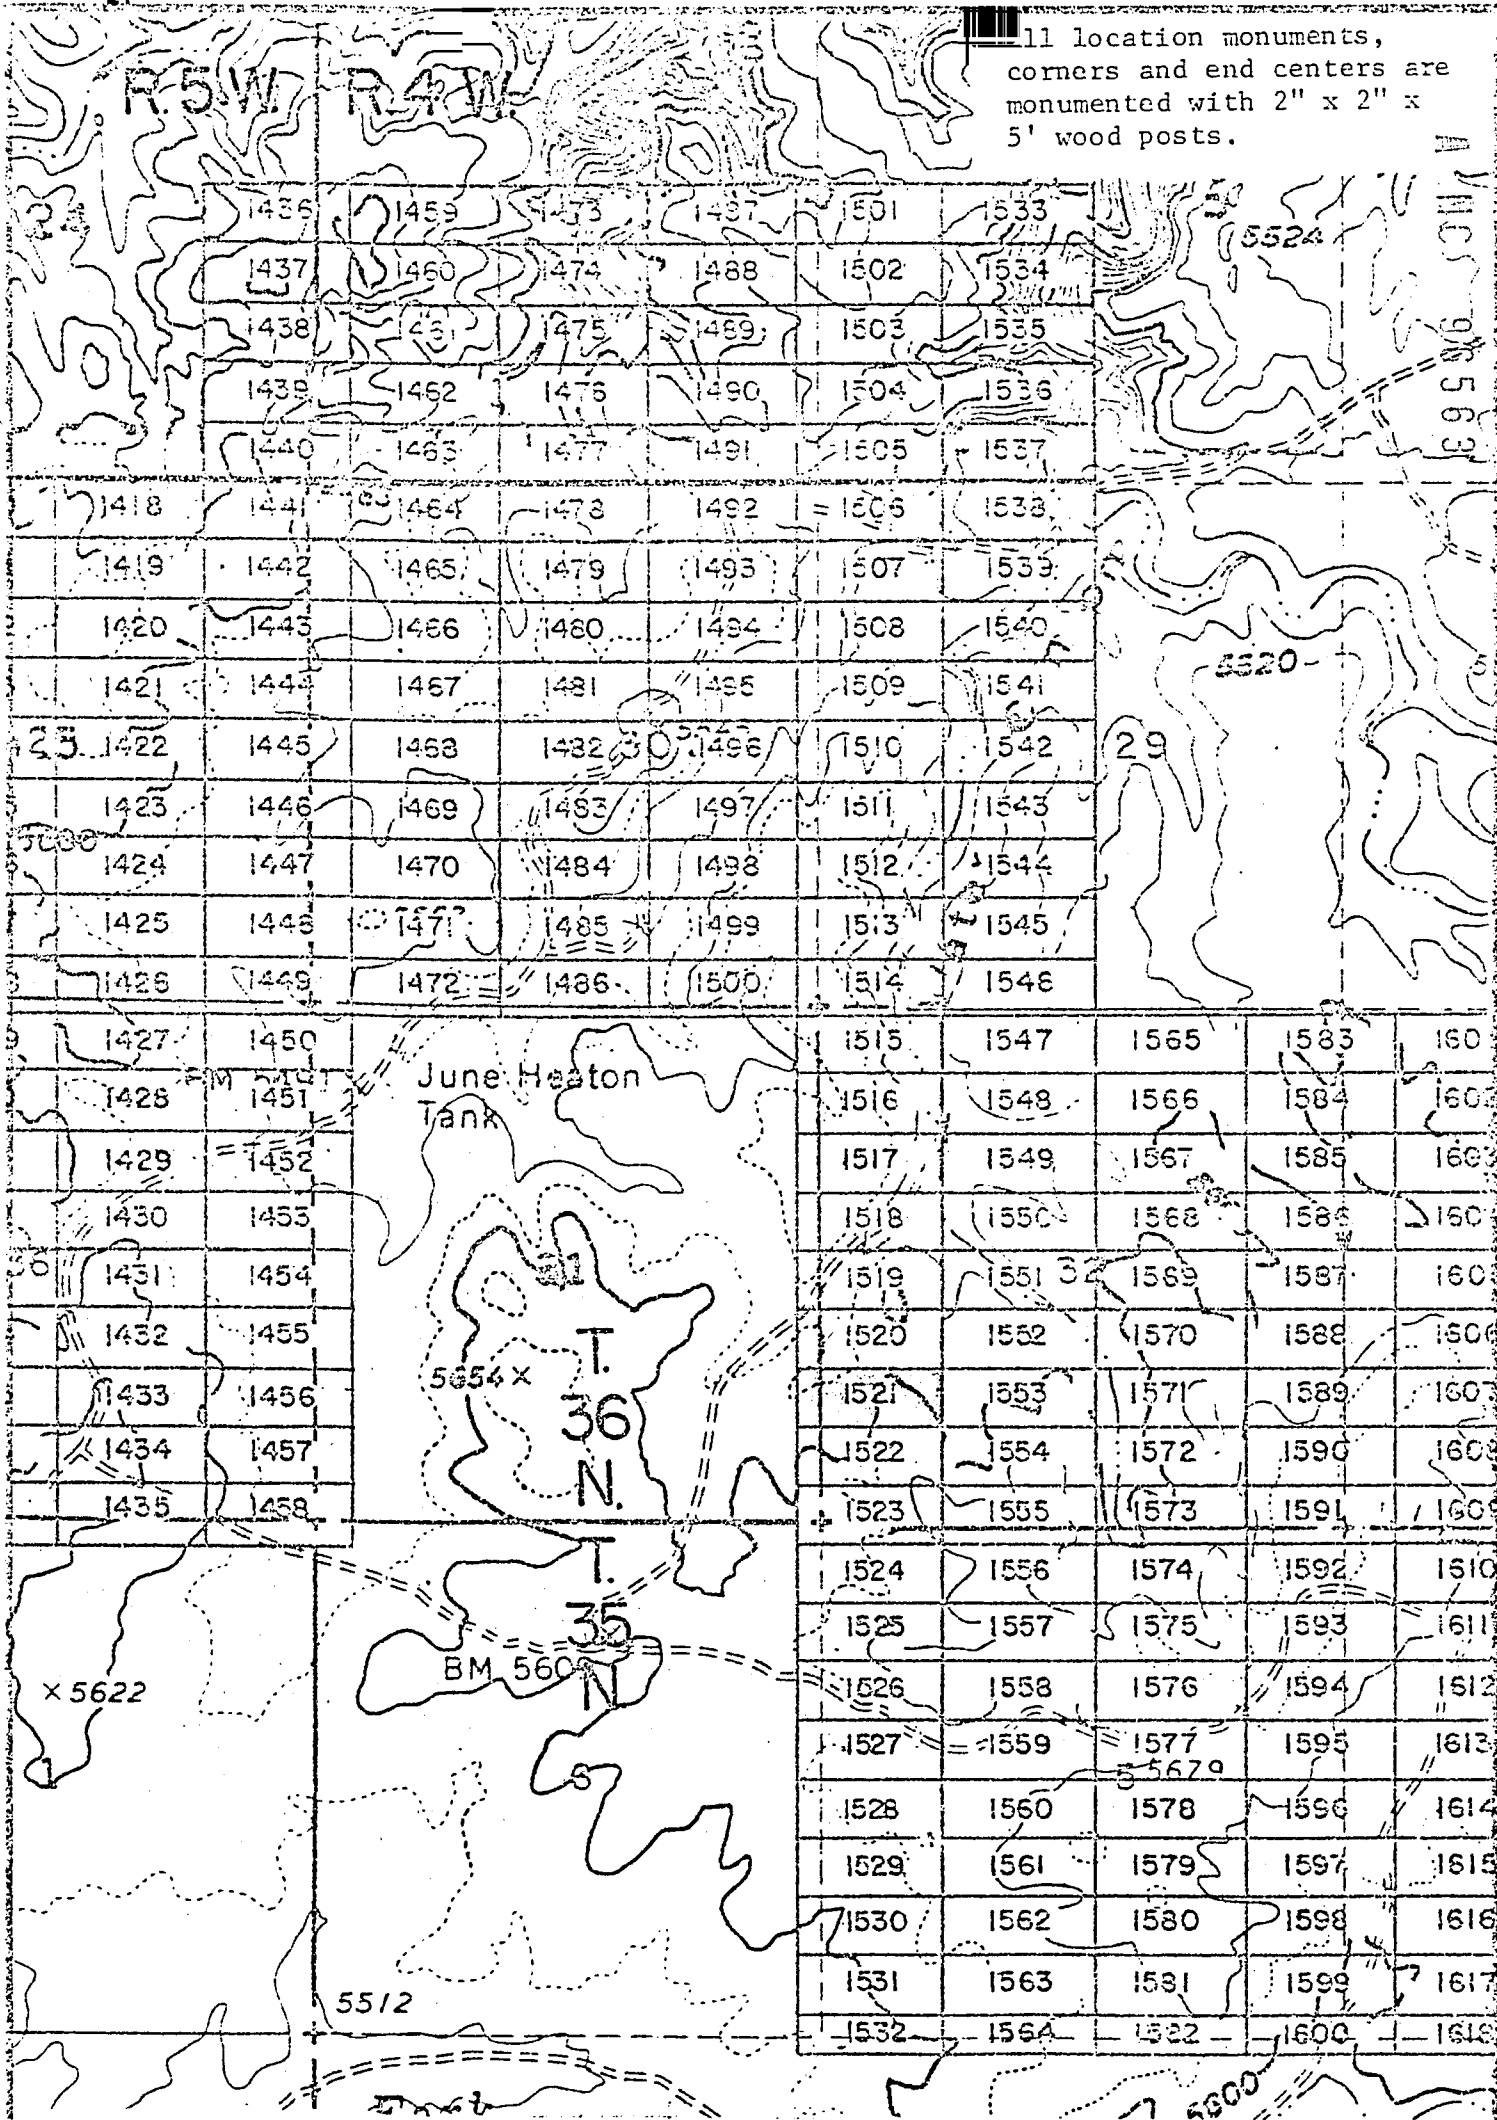 11 location monuments,
corners and end centers are
monumented with 2" x 2" x
5' wood posts.
R.5W. R.4W.
A MC 96563
24 1436 1459 1473 1487 1501 1533
5524
1437 1460 1474 1488 1502 1534
1438 1461 1475 1489 1503 1535
1439 1462 1476 1490 1504 1536
1440 1463 1477 1491 1505 1537
1418 1441 1464 1478 1492 1506 1538
1419 1442 1465 1479 1493 1507 1539
1420 1443 1466 1480 1494 1508 1540
5520
1421 1444 1467 1481 1495 1509 1541
25 1422 1445 1468 1482 30 1496 1510 1542 29
1423 1446 1469 1483 1497 1511 1543
1424 1447 1470 1484 1498 1512 1544
1425 1448 1471 1485 1499 1513 1545
1426 1449 1472 1486 1500 1514 1546
1427 1450 1515 1547 1565 1583 160
June Heaton
Tank
1428 1451 1516 1548 1566 1584 1602
1429 1452 1517 1549 1567 1585 1603
1430 1453 1518 1550 1568 1586 160
36 1431 1454 1519 1551 32 1569 1587 160
1432 1455 1520 1552 1570 1588 1606
T.
5654 ×
1433 1456 36 1521 1553 1571 1589 1607
1434 1457 1522 1554 1572 1590 1608
N.
1435 1458 1523 1555 1573 1591 1609
T.
1524 1556 1574 1592 1610
35 1525 1557 1575 1593 1611
BM 560
N
× 5622 1526 1558 1576 1594 1612
1527 1559 1577 1595 1613
1 6 5 5679
1528 1560 1578 1596 1614
1529 1561 1579 1597 1615
1530 1562 1580 1598 1616
1531 1563 1581 1599 1617
5512
1532 1564 1582 1600 1618
5600